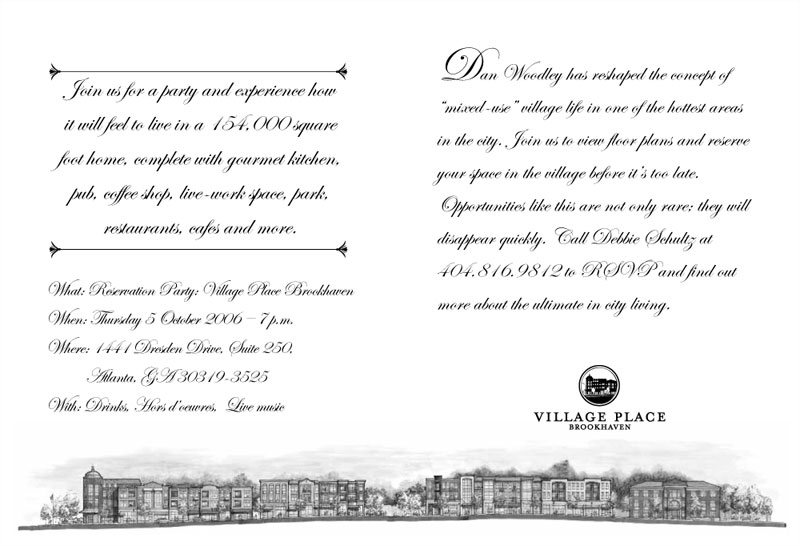 Join us for a party and experience how
it will feel to live in a 154,000 square
foot home, complete with gourmet kitchen,
pub, coffee shop, live-work space, park,
restaurants, cafes and more.
What: Reservation Party: Village Place Brookhaven
When: Thursday 5 October 2006 – 7 p.m.
Where: 1441 Dresden Drive, Suite 250,
Atlanta, GA 30319-3525
With: Drinks, Hors d'oeuvres, Live music
Dan Woodley has reshaped the concept of
"mixed-use" village life in one of the hottest areas
in the city. Join us to view floor plans and reserve
your space in the village before it's too late.
Opportunities like this are not only rare; they will
disappear quickly. Call Debbie Schultz at
404.816.9812 to RSVP and find out
more about the ultimate in city living.
VILLAGE PLACE
BROOKHAVEN